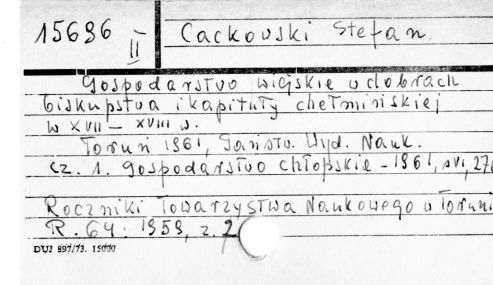 15696
II
Cackowski Stefan.
Gospodarstwo wiejskie w dobrach
biskupstwa i kapituły chełmińskiej
w XVII – XVIII w.
Toruń 1961, Państw. Wyd. Nauk.
cz. 1. Gospodarstwo chłopskie – 1961, ss VI, 276
Roczniki Towarzystwa Naukowego w Toruni
R. 64: 1959, z. 2
DUJ 897/73. 15000